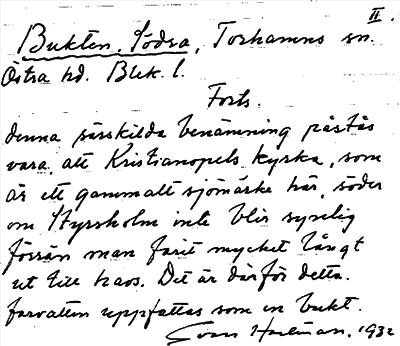 II.
Bukten, Södra, Torhamns sn.
Östra hd. Blek. l.
Forts.
denna särskilda benämning påstås
vara, att Kristianopels kyrka, som
är ett gammalt sjömärke här, söder
om Styrsholm inte blir synlig
förrän man farit mycket långt
ut till havs. Det är därför detta
farvatten uppfattas som en bukt.
Hallman. 1932